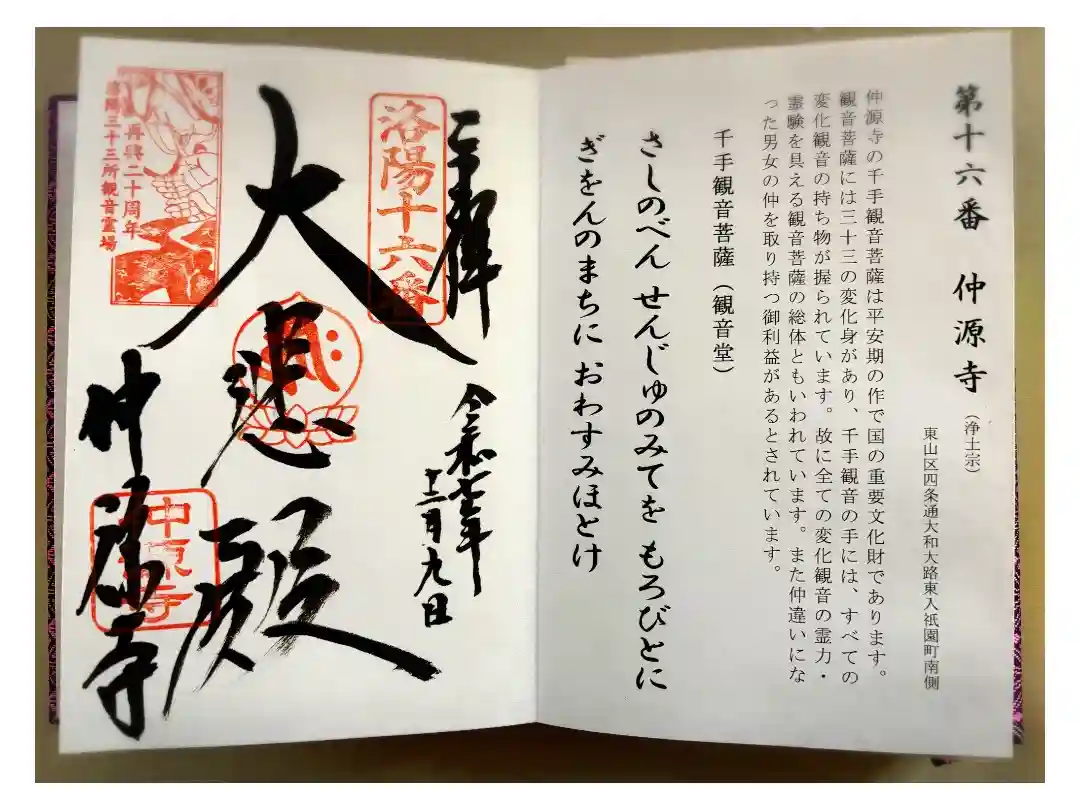 第十六番 仲源寺（浄土宗）
東山区四条通大和大路東入祇園町南側
仲源寺の千手観音菩薩は平安期の作で国の重要文化財であります。
観音菩薩には三十三の変化身があり、千手観音の手には、すべての
変化観音の持ち物が握られています。故に全ての変化観音の霊力・
霊験を具える観音菩薩の総体ともいわれています。また仲違いにな
った男女の仲を取り持つ御利益があるとされています。
千手観音菩薩（観音堂）
さしのべん せんじゅのみてを もろびとに
ぎをんのまちに おわすみほとけ
奉拝
令和七年
十二月九日
洛陽十六番
大悲殿
再興二十周年
洛陽三十三所観音霊場
仲源寺